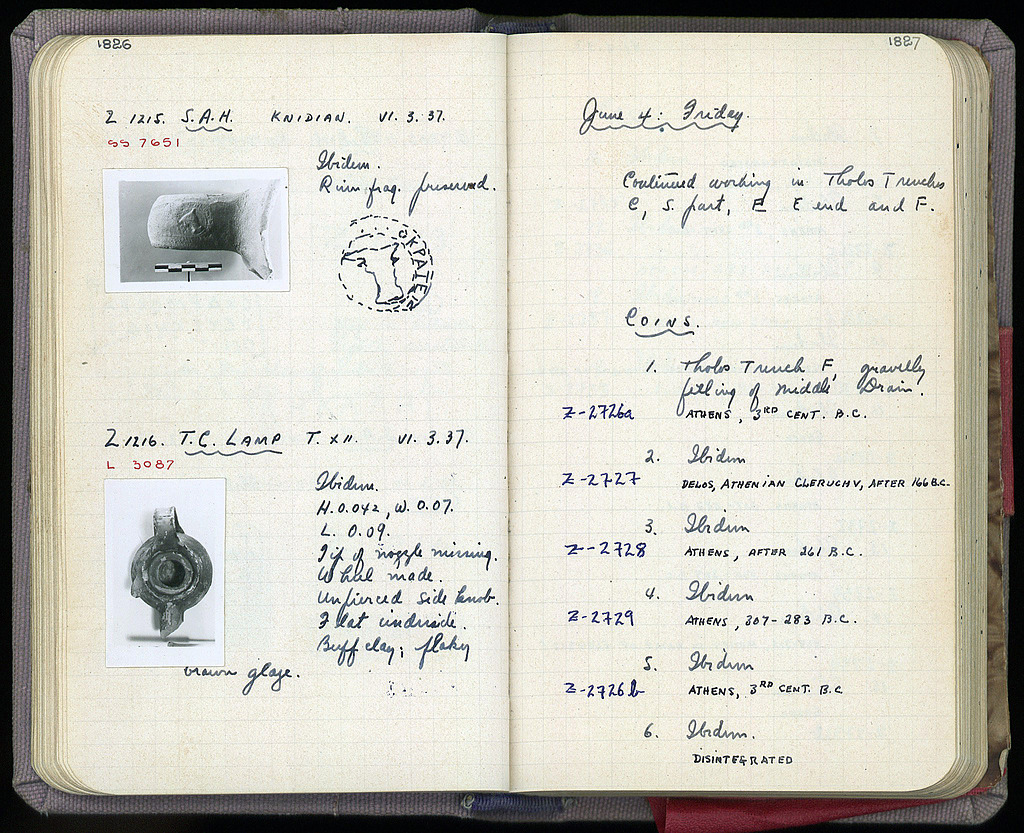 1826
Z 1215. S.A.H. KNIDIAN. VI. 3. 37.
SS 7651
Ibidem.
Rim frag. preserved.
ΟΚΡΑΤΕΥ
Z 1216. T.C. LAMP T. XII. VI. 3. 37.
L 3087
Ibidem.
H. 0.042, W. 0.07.
L. 0.09.
Tip of nozzle missing.
Wheel made.
Unpierced side knob.
Flat underside.
Buff clay; flaky
brown glaze.
1827
June 4: Friday.
Continued working in Tholos Trenches
C, S. part, E E end and F.
COINS.
1. Tholos Trench F, gravelly
filling of Middle Drain.
Z-2726a ATHENS, 3RD CENT. B.C.
2. Ibidem
Z-2727 DELOS, ATHENIAN CLERUCHY, AFTER 166 B.C.
3. Ibidem
Z-2728 ATHENS, AFTER 261 B.C.
4. Ibidem
Z-2729 ATHENS, 307-283 B.C.
5. Ibidem
Z-2726b ATHENS, 3RD CENT. B.C
6. Ibidem.
DISINTEGRATED